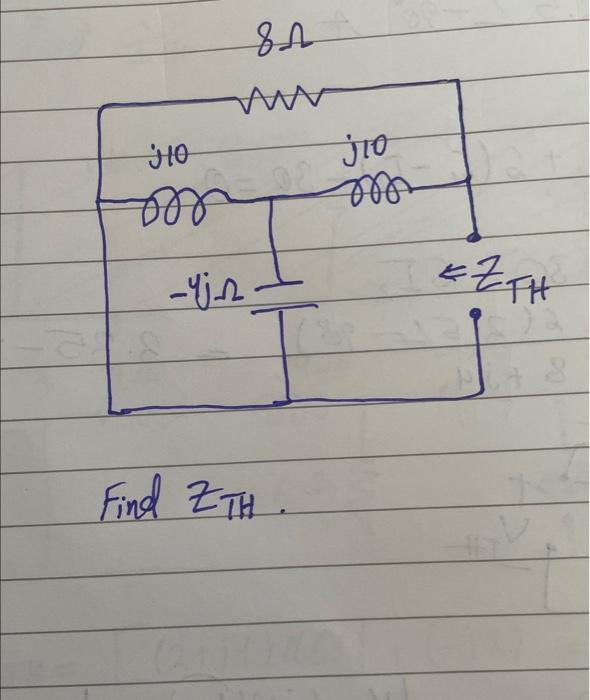 8Ω
j10
j10
-4jΩ
←Z TH
Find Z TH.